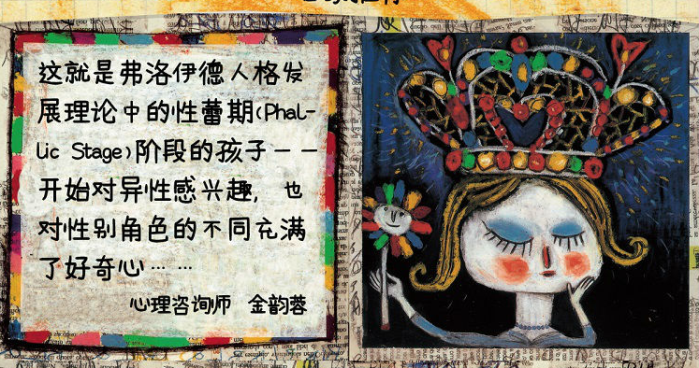 这就是弗洛伊德人格发
展理论中的性蕾期(Phal-
lic Stage)阶段的孩子——
开始对异性感兴趣，也
对性别角色的不同充满
了好奇心……
心理咨询师 金韵蓉